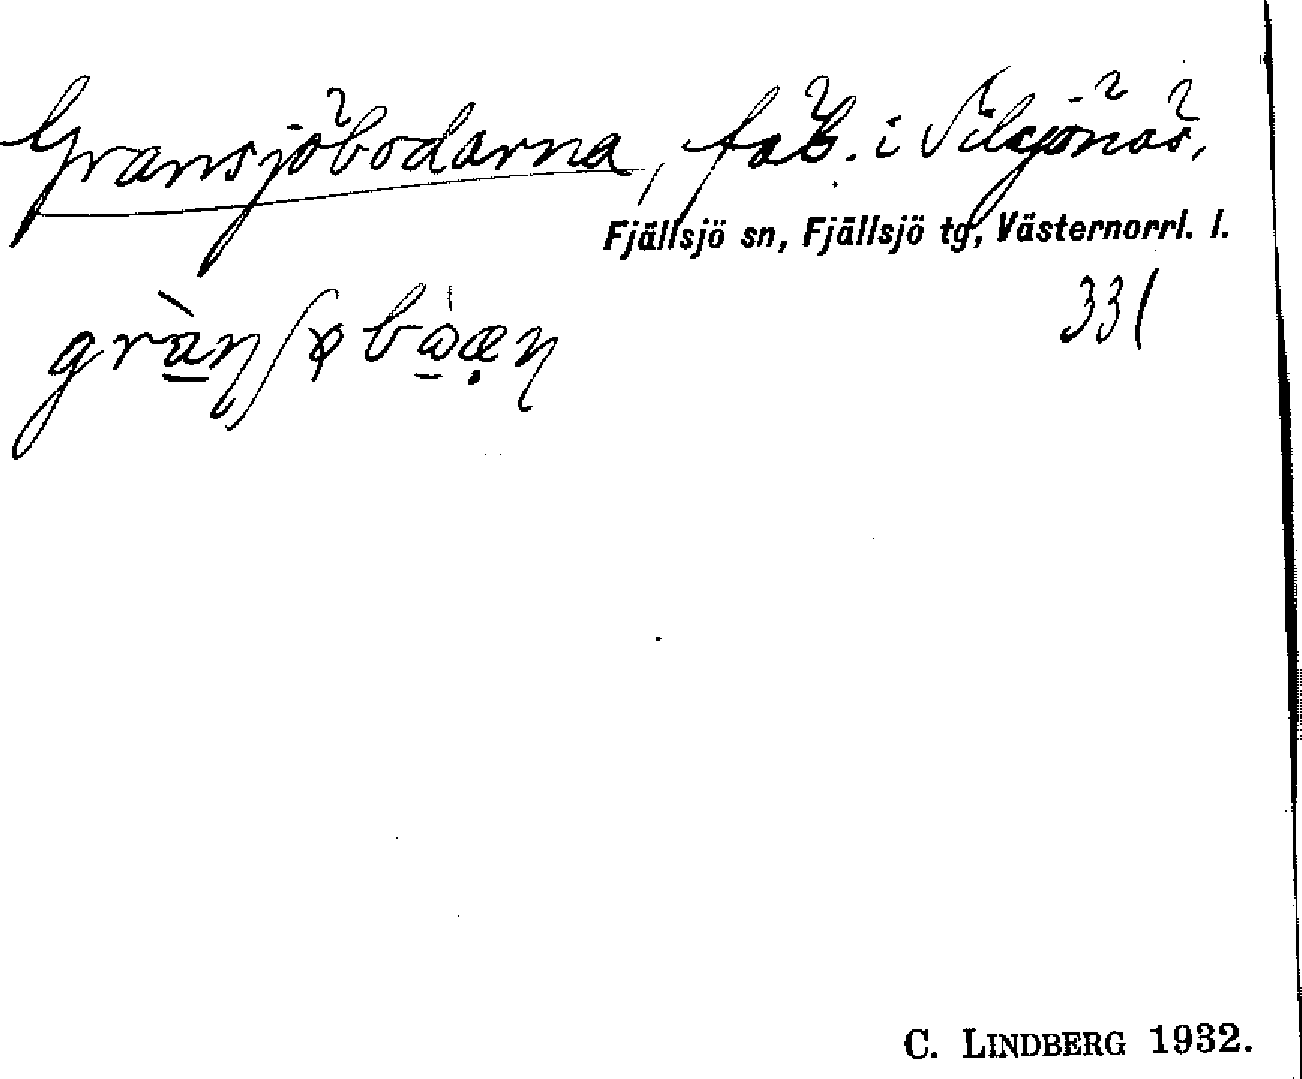 Gransjöbodarna, fäb. i Silsjönäs,
Fjällsjö sn, Fjällsjö tg, Västernorrl. l.
331
C. LINDBERG 1932.